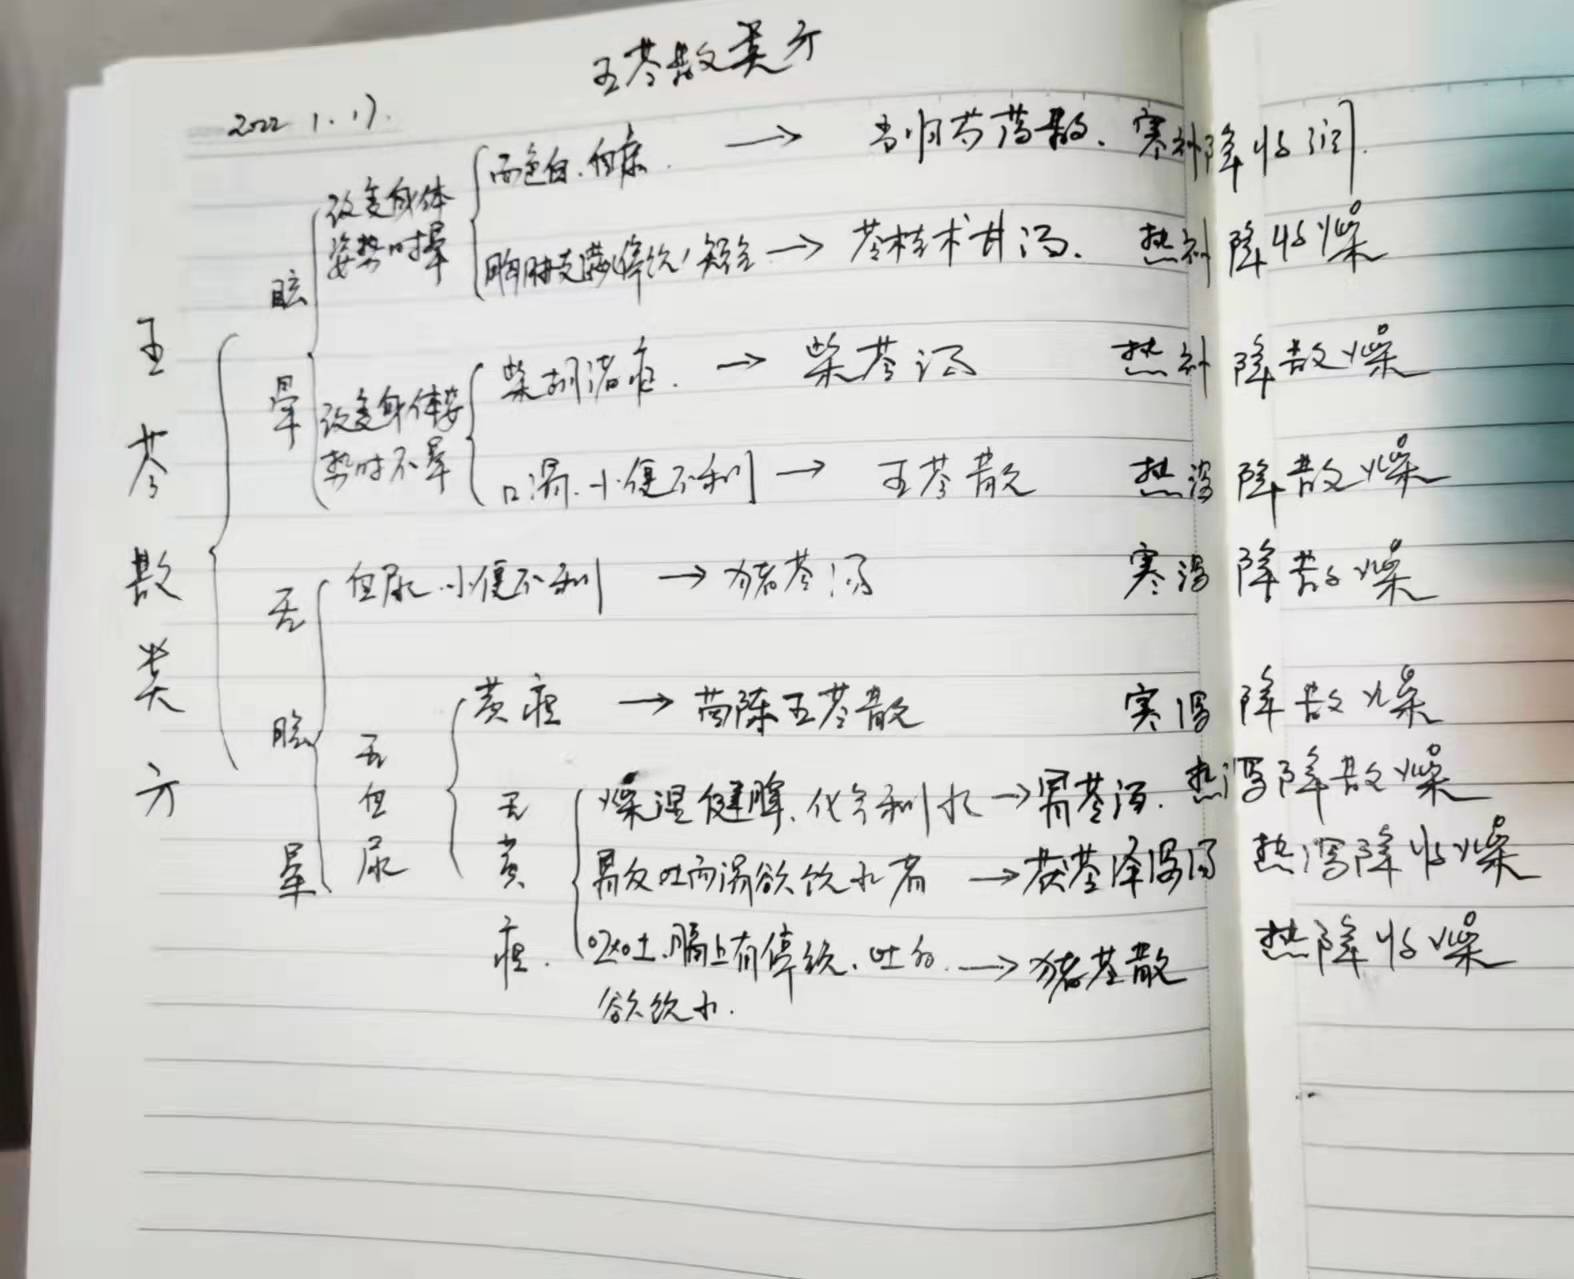 五苓散类方
2022 1.17.
五苓散类方
眩晕
改变身体姿势时晕
面色白、血尿. → 当归芍药散. 寒补降收润.
胸胁支满(停饮) 短气 → 苓桂术甘汤. 热补降收燥
改变身体姿势时不晕
柴胡诸症. → 柴苓汤 热补降散燥
口渴.小便不利 → 五苓散 热泻降散燥
无眩晕
血尿.小便不利 → 猪苓汤 寒泻降散燥
无血尿
黄疸 → 茵陈五苓散 寒泻降散燥
无黄疸.
燥湿健脾、化气利水 → 胃苓汤. 热泻降散燥
胃反吐而渴欲饮水者 → 茯苓泽泻汤 热泻降收燥
呕吐、膈上有停饮、吐后 → 猪苓散 热降收燥
欲饮水.